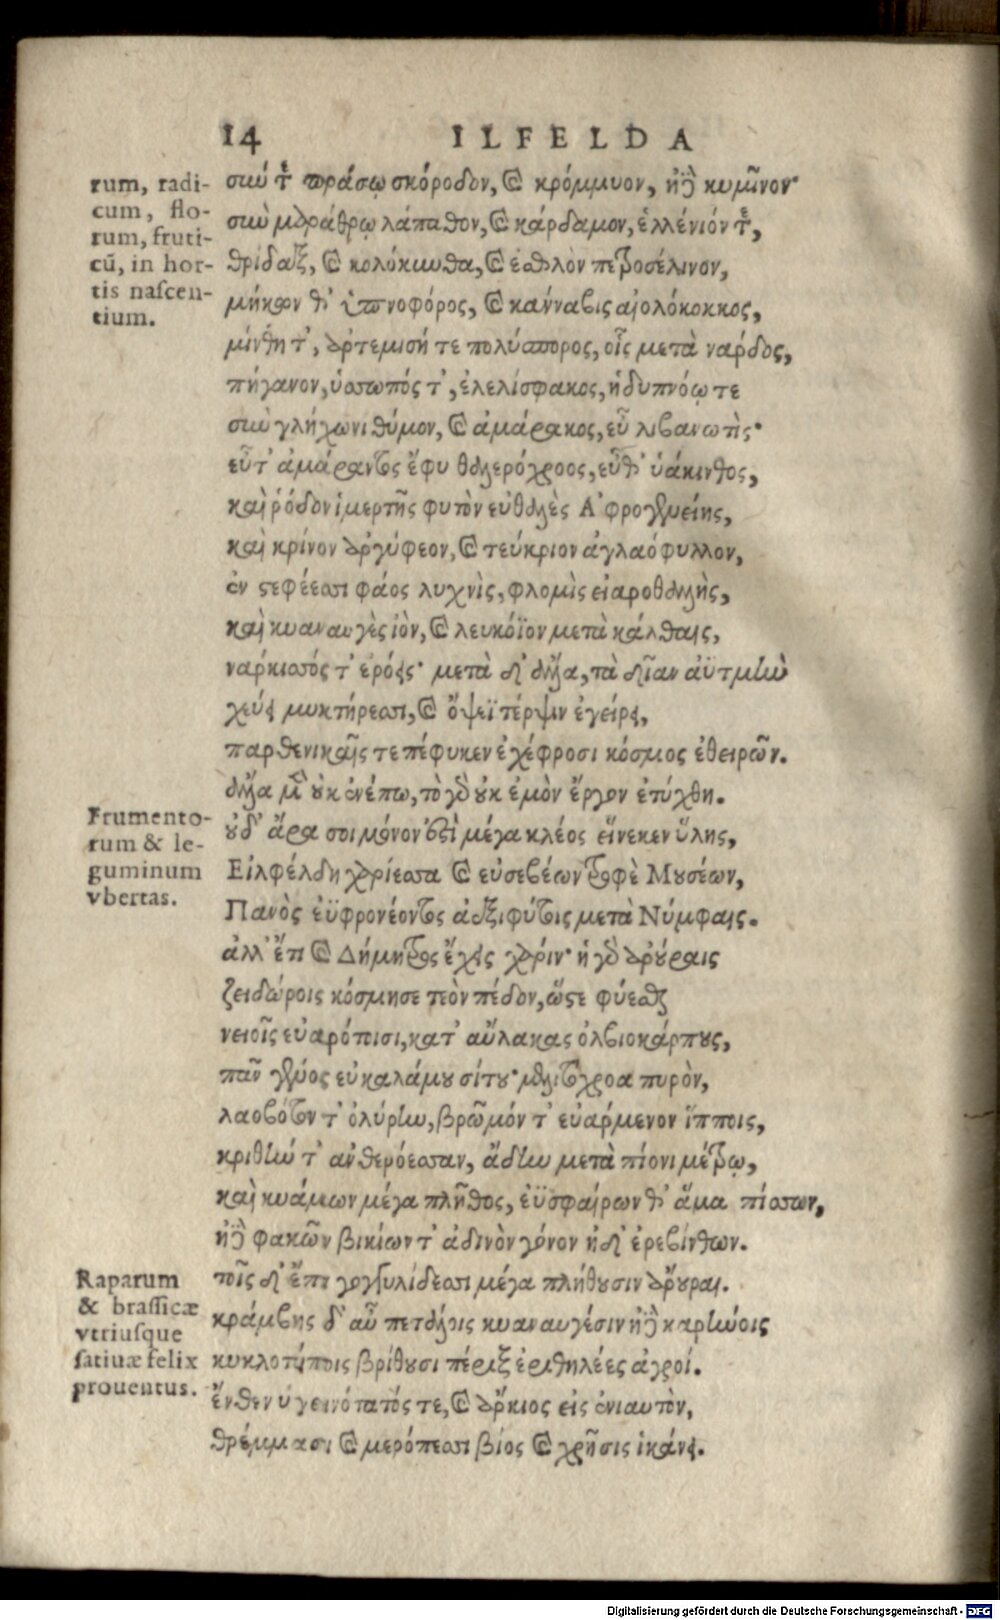 14 ILFELDA
rum, radi-
cum, flo-
rum, fruti-
cũ, in hor-
tis naſcen-
tium.
σιω τε πράσῳ σκόροδον, καὶ κρόμμυον, ἠδὲ κυμῖνον·
σιω μαράθρῳ λάπαθον, καὶ κάρδαμον, ἑλλένιόν τε,
θρίδαξ, καὶ κολόκιωθα, καὶ ἐσθλὸν πετροσέλινον,
μήκων θ' ὑπνοφόρος, καὶ κάνναβις αἰολόκοκκος,
μίνθη τ', ἀρτεμισή τε πολύσπορος, οἷς μετὰ νάρδος,
πήγανον, ὑσσωπός τ', ἐλελίσφακος, ἡδυπνόῳ τε
σιω γλήχωνι θύμον, καὶ ἀμάρακος, εὖ λιβανωτὶς·
εὖτ' ἀμάραντος ἔφυ θαλερόχροος, εὖθ' ὑάκινθος,
καὶ ῥόδον ἱμερτῆς φυτὸν εὐθαλὲς Ἀφρογενείης,
καὶ κρίνον ἀργύφεον, καὶ τεύκριον ἀγλαόφυλλον,
ἐν στεφέεσσι φάος λυχνὶς, φλομὶς εἰαροθαλὴς,
καὶ κυαναυγὲς ἰὸν, καὶ λευκόϊον μετὰ κάλθαις,
ναρκισσός τ' ἐρόεις· μετὰ δ' ἄλλα, τὰ λίαν ἀϋτμιὼ
χεύει μυκτήρεσσι, καὶ ὄψεϊ τέρψιν ἐγείρει,
παρθενικαῖς τε πέφυκεν ἐχέφροσι κόσμος ἐθειρῶν.
ἄλλα μὲν οὐκ ἐνέπω, τὸ γὰρ οὐκ ἐμὸν ἔργον ἐτύχθη.
Frumento-
rum & le-
guminum
vbertas.
οὐδ' ἄρα σοι μόνον ἐστὶ μέγα κλέος εἵνεκεν ὕλης,
Εἰλφέλδη χαρίεσσα καὶ εὐσεβέων τροφὲ Μουσέων,
Πανὸς ἐϋφρονέοντος ἀεξιφύτοις μετὰ Νύμφαις.
ἀλλ' ἔτι καὶ Δήμητρος ἔχεις χάριν· ἡ γὰρ ἀρούραις
ζειδώροις κόσμησε τεὸν πέδον, ὥστε φύεσθαι
νειοῖς εὐαρότοισι, κατ' αὔλακας ὀλβιοκάρπους,
πᾶν γένος εὐκαλάμου σίτου· μελιτόχροα πυρὸν,
λαοβότον τ' ὀλύριω, βρῶμόν τ' εὐάρμενον ἵπποις,
κριθιώ τ' ἀνθερόεσσαν, ἄδιω μετὰ πίονι μέτρῳ,
καὶ κυάμων μέγα πλῆθος, ἐϋσφαίρων θ' ἅμα πίσσων,
ἠδὲ φακῶν βικίων τ' ἀδινὸν γόνον ἠδ' ἐρεβίνθων.
Raparum
& braſſicæ
vtriuſque
ſatiuæ felix
prouentus.
τοῖς δ' ἔπι γογγυλίδεσσι μέγα πλήθουσιν ἄρουραι.
κράμβης δ' αὖ πετάλοις κυαναυγέσιν ἠδὲ καριώοις
κυκλοτύποις βρίθουσι πέριξ ἐριθηλέες ἀγροί.
ἔνθεν ὑγεινότατός τε, καὶ ἄρκιος εἰς ἐνιαυτὸν,
θρέμμασι καὶ μερόπεσσι βίος καὶ χρῆσις ἱκάνει.
Digitalisierung gefördert durch die Deutsche Forschungsgemeinschaft - DFG